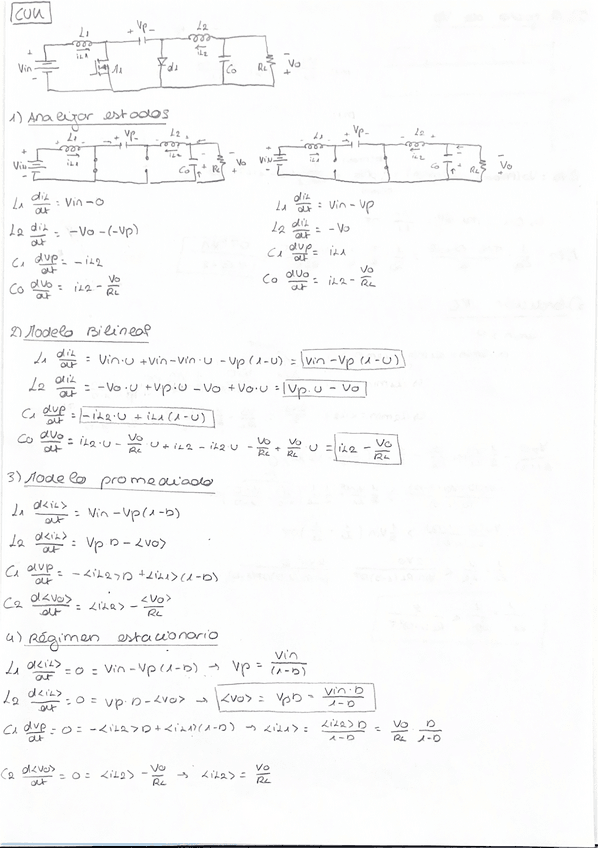 CUK
L1 + Vp - L2
Vin iL1 M1 d1 iL2 Co RL Vo
1) Analizar estados
L1 + Vp - L2 L1 Vp L2
Vin iL1 iL2 Co RL Vo Vin iL1 iL2 Co RL Vo
L1 diL/dt = Vin - 0 L1 diL/dt = Vin - Vp
L2 diL/dt = -Vo - (-Vp) L2 diL/dt = -Vo
C1 dvp/dt = -iL2 C1 dvp/dt = iL1
Co dvo/dt = iL2 - Vo/RL Co dvo/dt = iL2 - Vo/RL
2) Modelo Bilineal
L1 diL/dt = Vin·U + Vin - Vin·U - Vp(1-U) = Vin - Vp(1-U)
L2 diL/dt = -Vo·U + Vp·U - Vo + Vo·U = Vp·U - Vo
C1 dvp/dt = -iL2·U + iL1(1-U)
Co dvo/dt = iL2·U - Vo/RL U + iL2 - iL2 U - Vo/RL + Vo/RL U = iL2 - Vo/RL
3) Modelo promediado
L1 d<iL>/dt = Vin - Vp(1-D)
L2 d<iL>/dt = Vp D - <Vo>
C1 dvp/dt = -<iL2>D + <iL1>(1-D)
C2 d<Vo>/dt = <iL2> - <Vo>/RL
4) Régimen estacionario
L1 d<iL>/dt = 0 = Vin - Vp(1-D) → Vp = Vin/(1-D)
L2 d<iL>/dt = 0 = Vp·D - <Vo> → <Vo> = VpD = Vin·D/1-D
C1 dvp/dt = 0 = -<iL2>D + <iL1>(1-D) → <iL1> = <iL2>D/1-D = Vo/RL D/1-D
C2 d<Vo>/dt = 0 = <iL2> - Vo/RL → <iL2> = Vo/RL